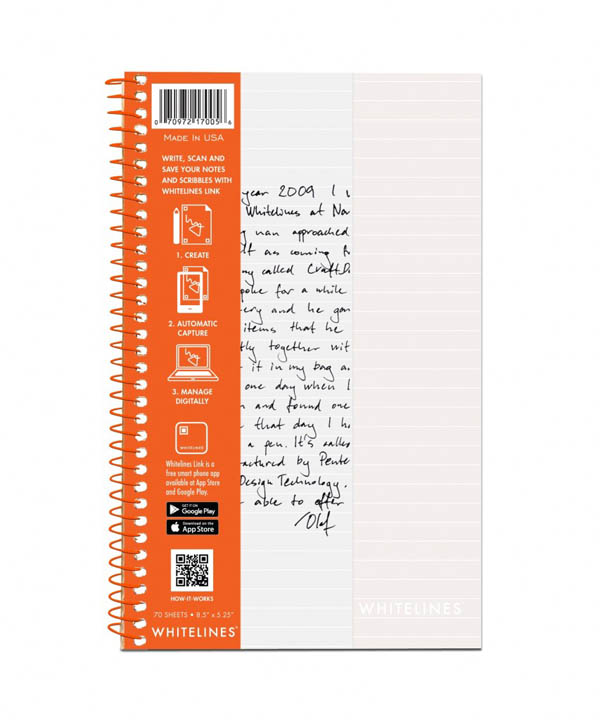 0 70972 17005 6
MADE IN USA
WRITE, SCAN AND
SAVE YOUR NOTES
AND SCRIBBLES WITH
WHITELINES LINK
1. CREATE
2. AUTOMATIC
CAPTURE
3. MANAGE
DIGITALLY
WHITELINES
Whitelines Link is a
free smart phone app
available at App Store
and Google Play.
GET IT ON
Google Play
Download on the
App Store
HOW-IT-WORKS
70 SHEETS • 8.5" x 5.25"
WHITELINES®
year 2009 I
Whitelines at
man approached
as coming
called
for a while
and he
items that he
together
it in my bag
one day when I
and found one
that day I
a pen. It's
by
Design Technology.
able to offer
/Olof
WHITELINES